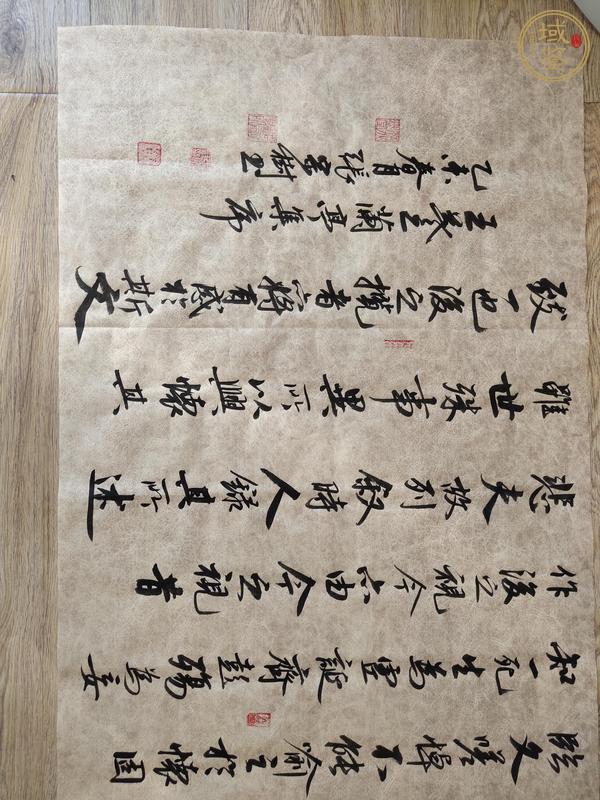 臨文嗟悼不能喻之於懷固
知一死生為虛誕齊彭殤為妄
作後之視今亦由今之視昔
悲夫故列敘時人錄其所述
雖世殊事異所以興懷其
致一也後之攬者亦將有感於斯文
王羲之蘭亭集序
乙未春月張